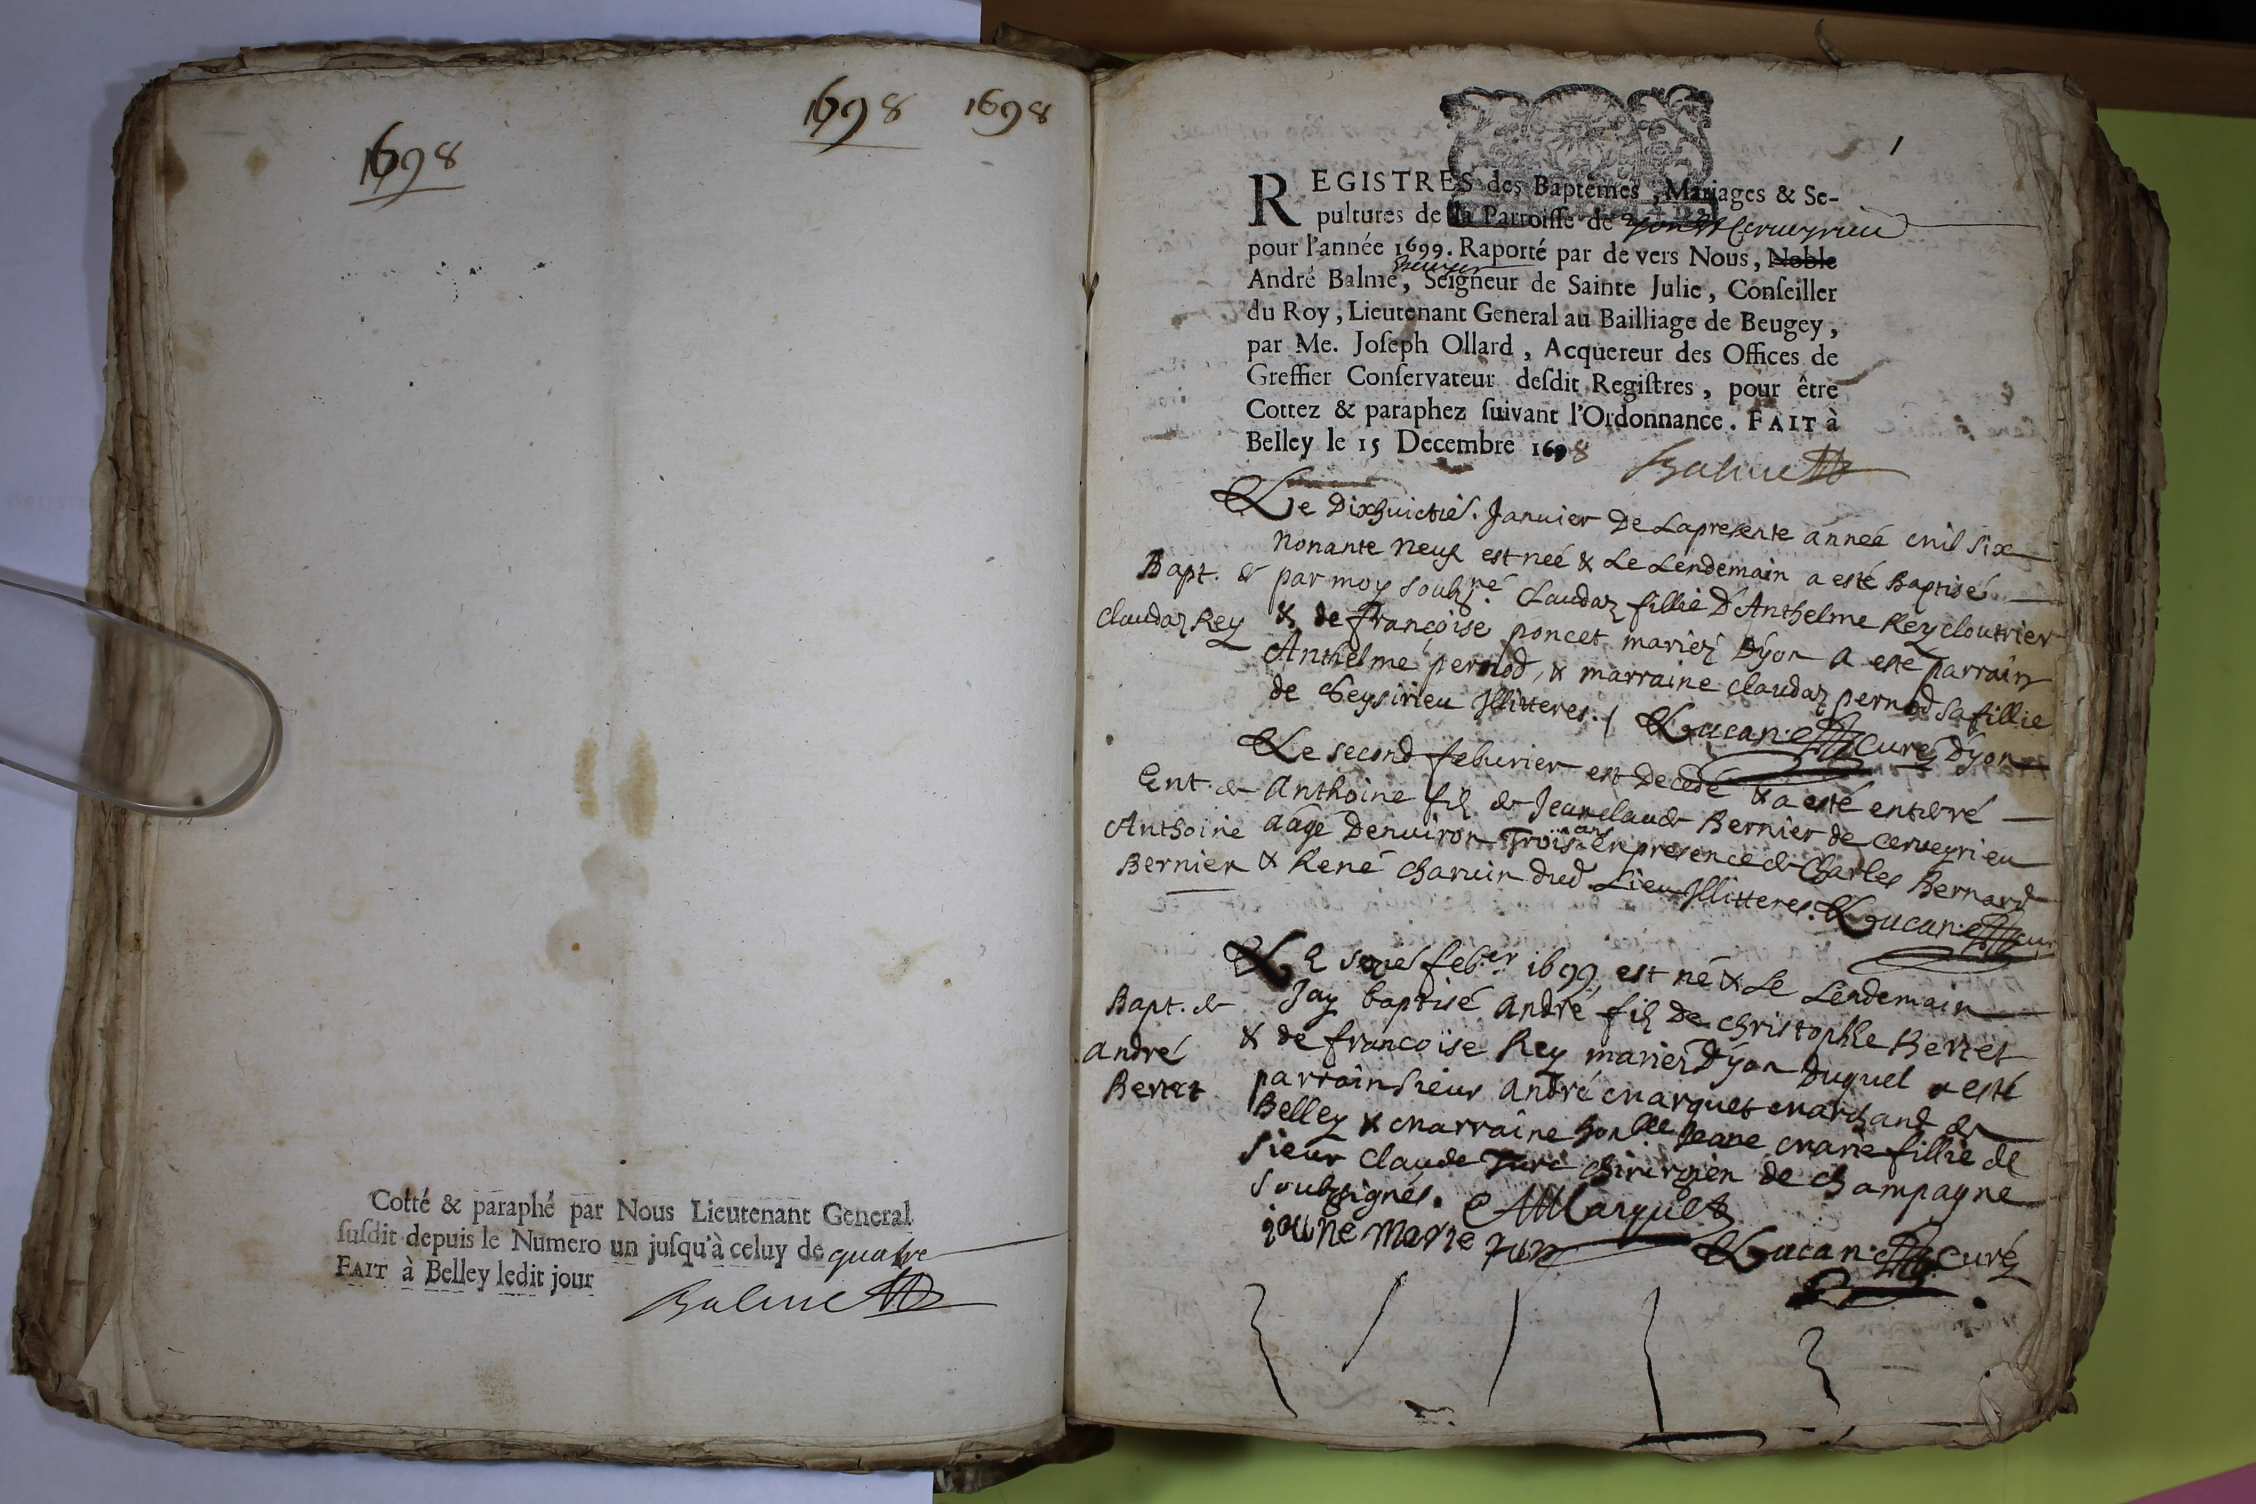 1698
1698
1698
Cotté & paraphé par Nous Lieutenant General
ſuſdit depuis le Numero un juſqu'à celuy de quatre
FAIT à Belley ledit jour
Balme
1
REGISTRES des Baptêmes, Mariages & Se-
pultures de la Parroiſſe de yon & Cerveyrieu
pour l'année 1699. Raporté par de vers Nous, Noble
André Balme, Seigneur de Sainte Julie, Conſeiller
du Roy, Lieutenant General au Bailliage de Beugey,
par Me. Joſeph Ollard, Acquereur des Offices de
Greffier Conſervateur deſdit Regiſtres, pour être
Cottez & paraphez ſuivant l'Ordonnance. FAIT à
Belley le 15 Decembre 1698
Balme
Le Dixhuictie. Januier De Lapresente année mil six
nonante neuf est neé & Le Lendemain a esté Baptisé
Bapt. de par moy soubzné. Claudaz fillie D'Anthelme Rey cloutrier
Claudaz Rey & de françoise poncet mariez Dyon a esté parrain
Anthelme pernod, & marraine claudaz pernod sa fillie
de Ceysirieu Illitteres. Lucan curé Dyon
Le second feburier est Decedé & a esté enterré
Ent. de Anthoine filz de Jean claude Bernier de cerveyrieu
Anthoine aagé Denuiron Trois ans en presence de Charles Bernard
Bernier & René charuin dud. Lieu Illitteres. Lucan cur
Le feb.er 1699 est né & Le Lendemain
Bapt. de Jay baptisé André filz De christophle Bertet
André & de françoise Rey mariez Dyon Duquel a esté
Bertet parrain sieur André marquet marchand de
Belley & marraine hon.ble Jeane marie fillie de
sieur claude Turc chirurgien de champagne
soubzsignés. AMarquet
jeane marie Lucan curé